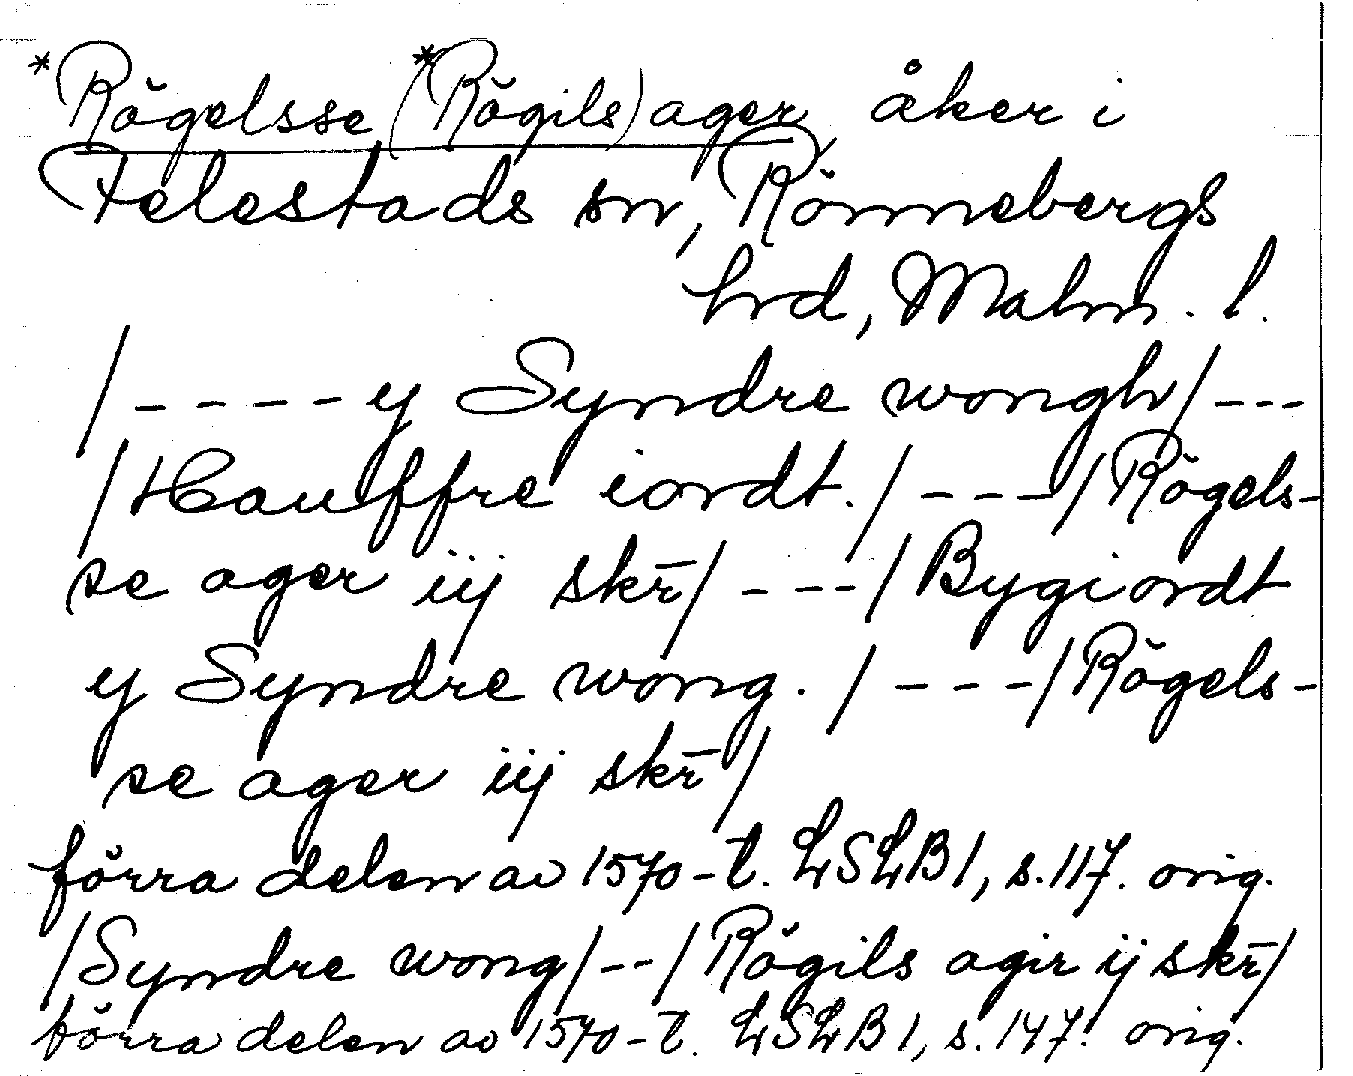 *Rögelsse (*Rögils) ager, åker i
Felestads sn, Rönnebergs
hrd, Malm. l.
/ - - - - y Syndre wongh/ - - -
/Hauffre iordt./ - - - /Rögels-
se ager iij skr̄/ - - - /Bygiordt
y Syndre wong. / - - - /Rögels-
se ager iij skr̄/
förra delen av 1570-t. LSLB 1, s. 117. orig.
/Syndre wong/ - - /Rögils agir ij skr̄/
förra delen av 1570-t. LSLB 1, s. 147. orig.